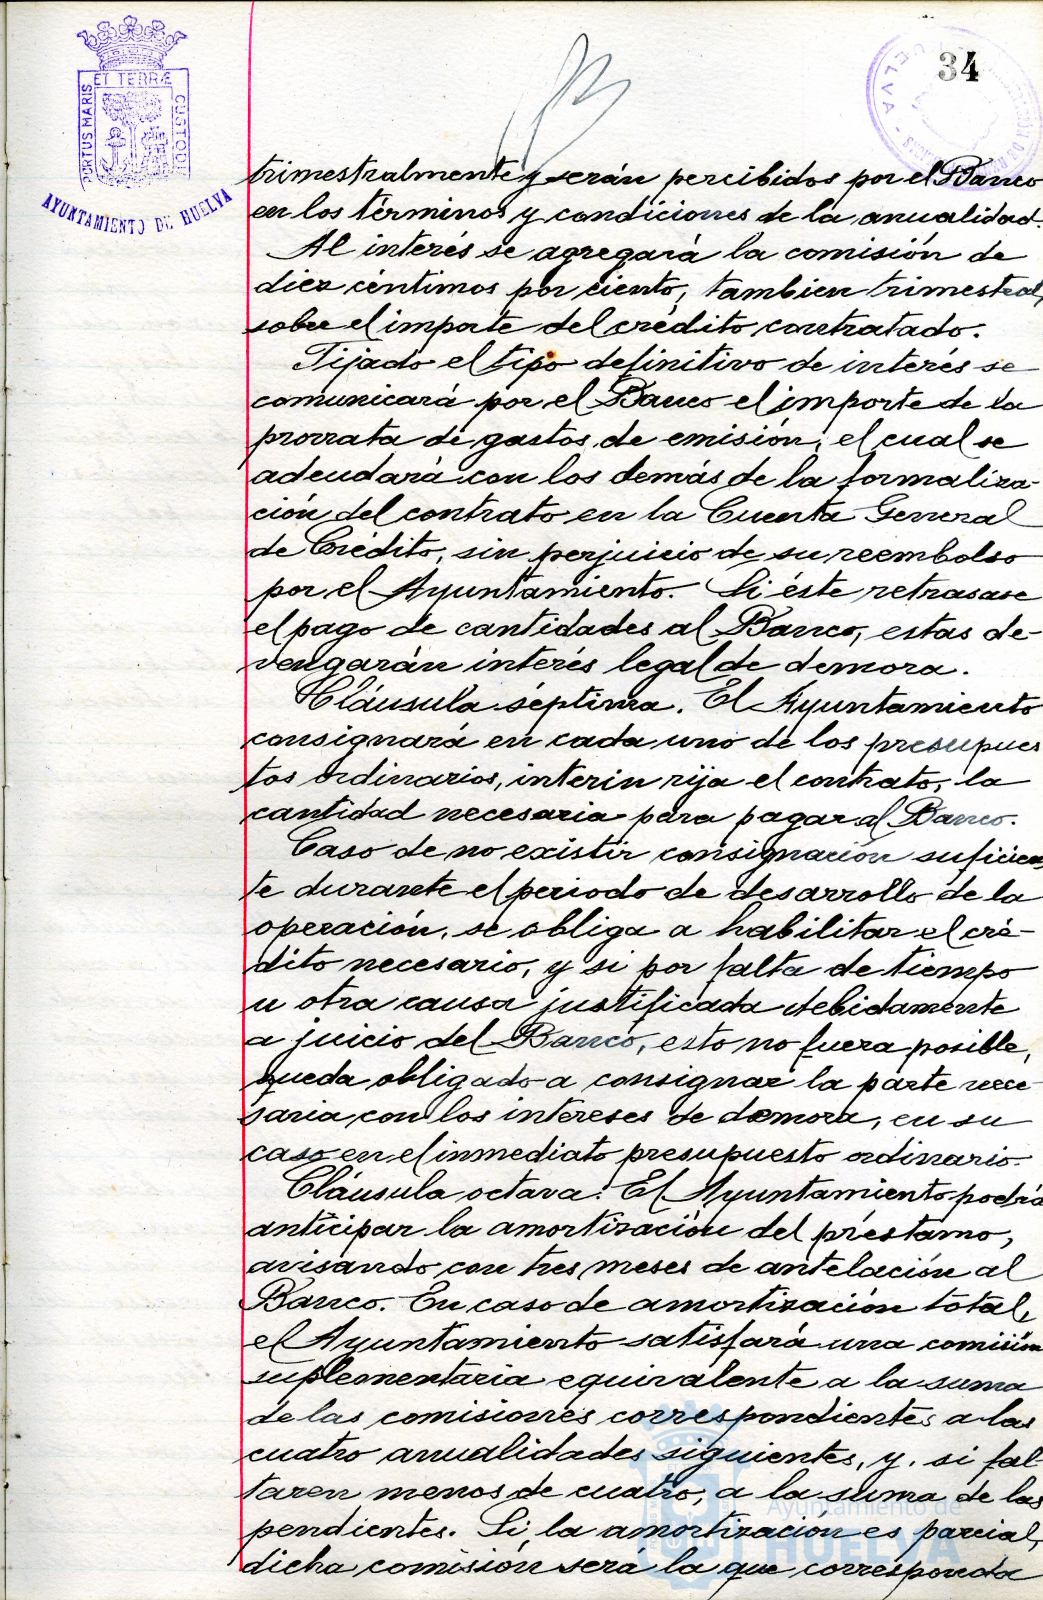 34
ET TERRÆ
PORTUS MARIS
CUSTODI
AYUNTAMIENTO DE HUELVA
HUELVA
trimestralmente y serán percibidos por el Banco
en los términos y condiciones de la anualidad.
Al interés se agregará la comisión de
diez céntimos por ciento, tambien trimestral,
sobre el importe del crédito contratado.
Fijado el tipo definitivo de interés se
comunicará por el Banco el importe de la
prorrata de gastos de emisión, el cual se
adeudará con los demás de la formaliza-
ción del contrato en la Cuenta General
de Crédito, sin perjuicio de su reembolso
por el Ayuntamiento. Si éste retrasase
el pago de cantidades al Banco, estas de-
vengarán interés legal de demora.
Cláusula séptima. El Ayuntamiento
consignará en cada uno de los presupues
tos ordinarios, interin rija el contrato, la
cantidad necesaria para pagar al Banco.
Caso de no existir consignación suficien
te durante el periodo de desarrollo de la
operación, se obliga a habilitar el cré-
dito necesario, y si por falta de tiempo
u otra causa justificada debidamente
a juicio del Banco, esto no fuera posible,
queda obligado a consignar la parte nece-
saria con los intereses de demora, en su
caso en el inmediato presupuesto ordinario.
Cláusula octava. El Ayuntamiento podrá
anticipar la amortización del préstamo,
avisando con tres meses de antelación al
Banco. En caso de amortización total,
el Ayuntamiento satisfará una comisión
suplementaria equivalente a la suma
de las comisiones correspondientes a las
cuatro anualidades siguientes, y, si fal-
taren menos de cuatro, a la suma de las
pendientes. Si la amortización es parcial,
dicha comisión será la que corresponda
Ayuntamiento de
HUELVA